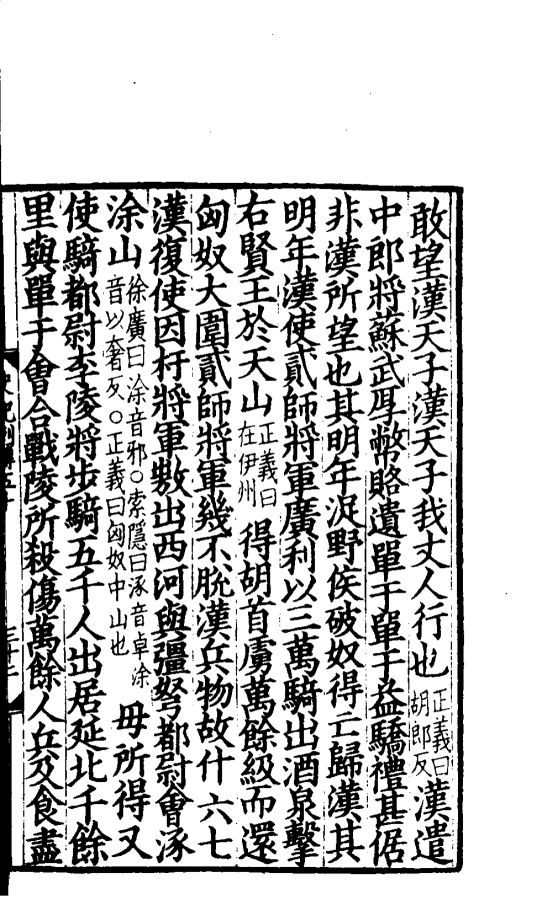 敢望漢天子漢天子我丈人行也正義曰胡郎反漢遣
中郎將蘇武厚幣賂遺單于單于益驕禮甚倨
非漢所望也其明年浞野侯破奴得亡歸漢其
明年漢使貳師將軍廣利以三萬騎出酒泉擊
右賢王於天山正義曰在伊州得胡首虜萬餘級而還
匈奴大圍貳師將軍幾不脫漢兵物故什六七
漢復使因杅將軍敖出西河與彊弩都尉會涿
涂山徐廣曰涂音邪○索隱曰涿音卓涂音以奢反○正義曰匈奴中山也毋所得又
使騎都尉李陵將步騎五千人出居延北千餘
里與單于會合戰陵所殺傷萬餘人兵及食盡